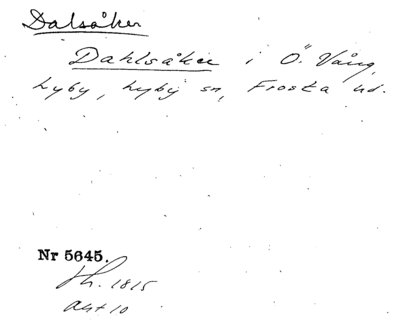 Dalsåker
Dahlsåker i Ö. Vång,
Lyby, Lyby sn, Frosta hd.
Nr 5645.
Sk. 1815
akt 10